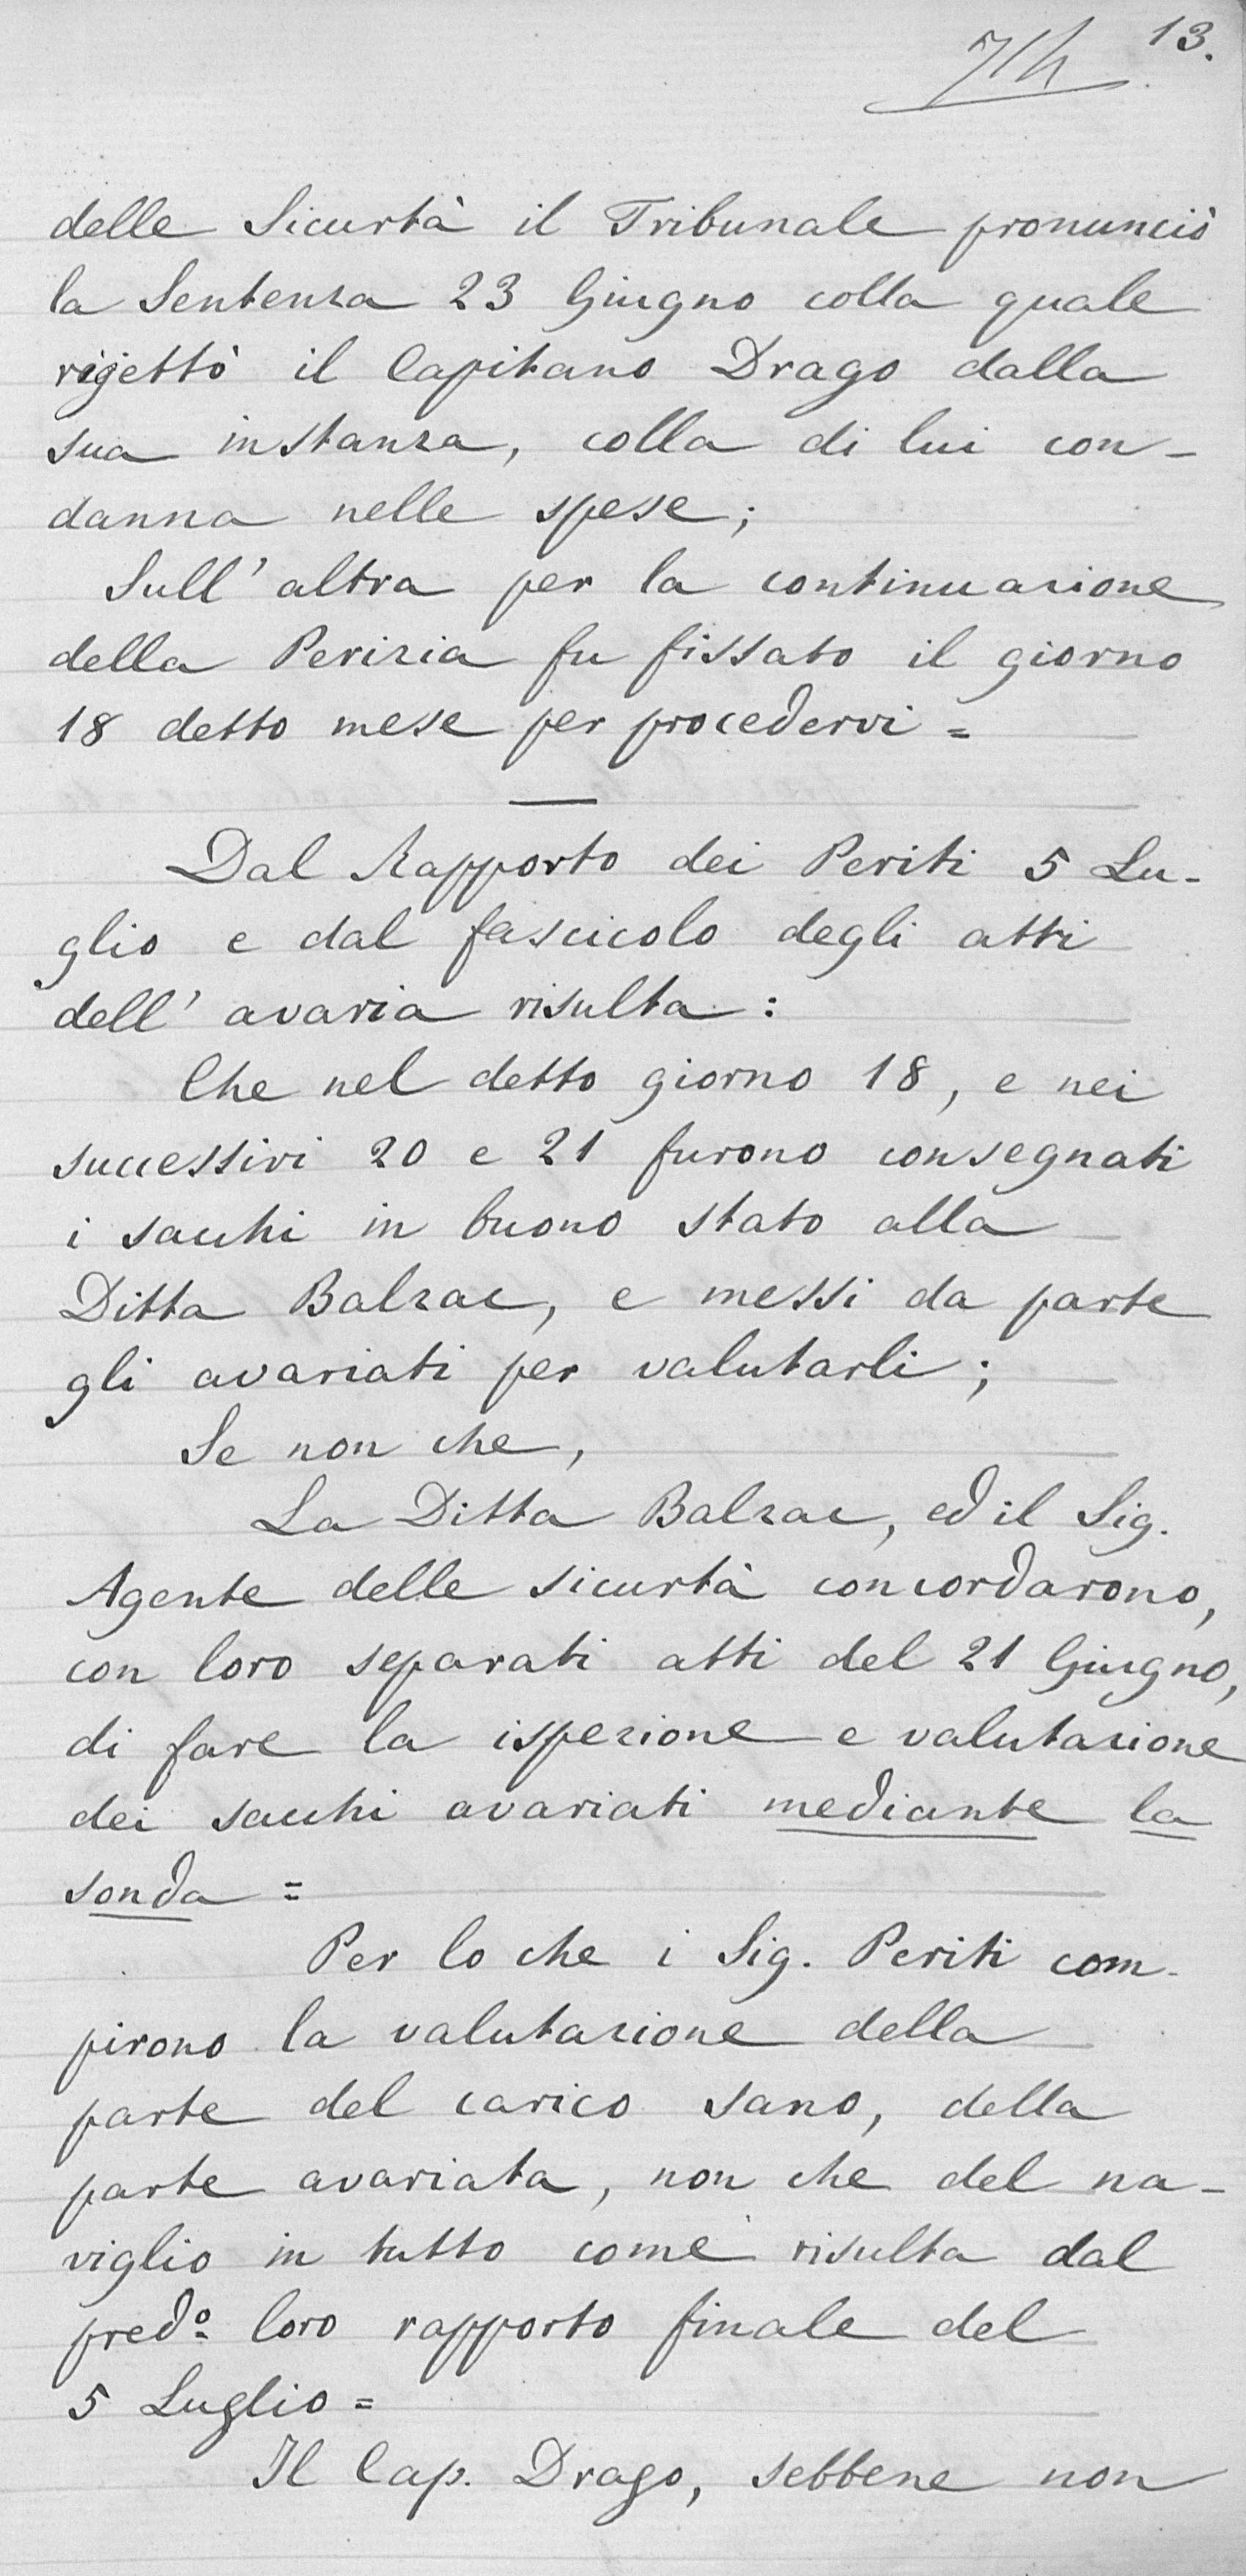 13.
delle Sicurtà il Tribunale pronunciò
la Sentenza 23 Giugno colla quale
rigettò il Capitano Drago dalla
sua instanza, colla di lui con-
danna nelle spese;
Sull'altra per la continuazione
della Perizia fu fissato il giorno
18 detto mese per procedervi =
Dal Rapporto dei Periti 5 Lu-
glio e dal fascicolo degli atti
dell'avaria risulta:
Che nel detto giorno 18, e nei
successivi 20 e 21 furono consegnati
i sacchi in buono stato alla
Ditta Balzac, e messi da parte
gli avariati per valutarli;
Se non che,
La Ditta Balzac, ed il Sig.
Agente delle sicurtà concordarono,
con loro separati atti del 21 Giugno,
di fare la ispezione e valutazione
dei sacchi avariati mediante la
sonda =
Per lo che i Sig. Periti com-
pirono la valutazione della
parte del carico sano, della
parte avariata, non che del na-
viglio in tutto come risulta dal
pred.º loro rapporto finale del
5 Luglio =
Il Cap. Drago, sebbene non